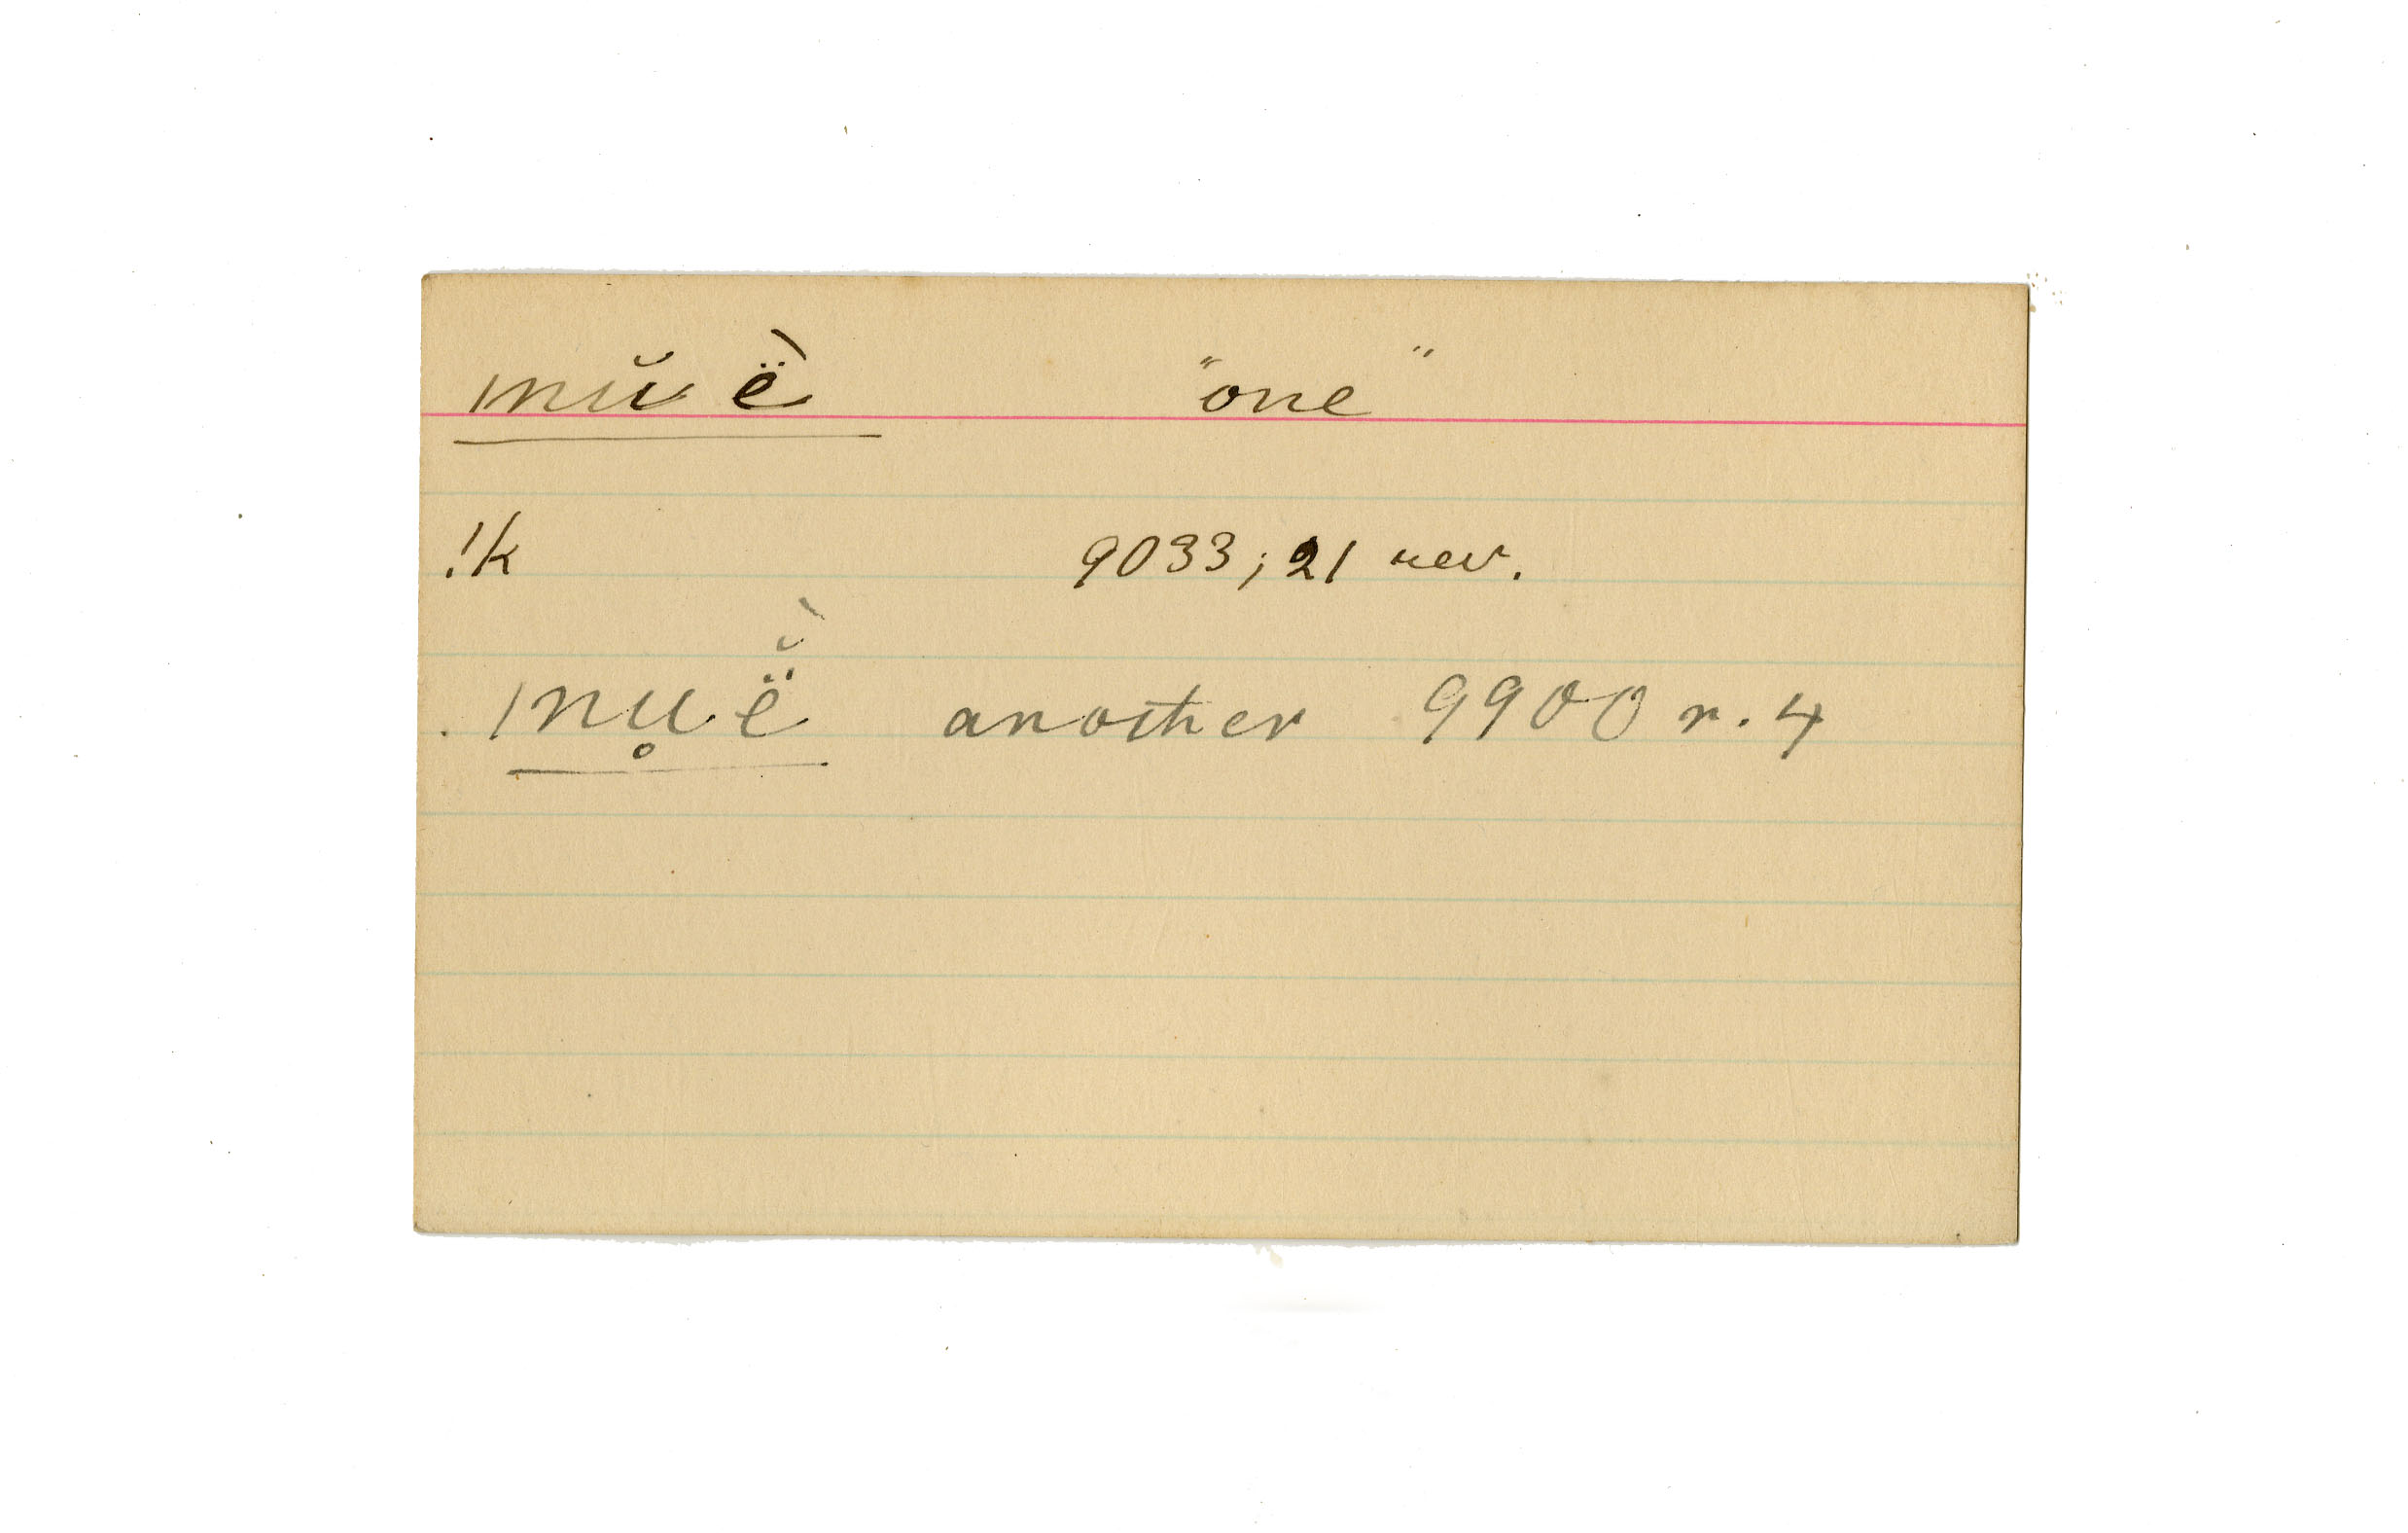 ǀnŭ ë̀ "one"
!k 9033; 21 rev.
ǀnu̥ ë̯̆̀ another 9900 r. 4